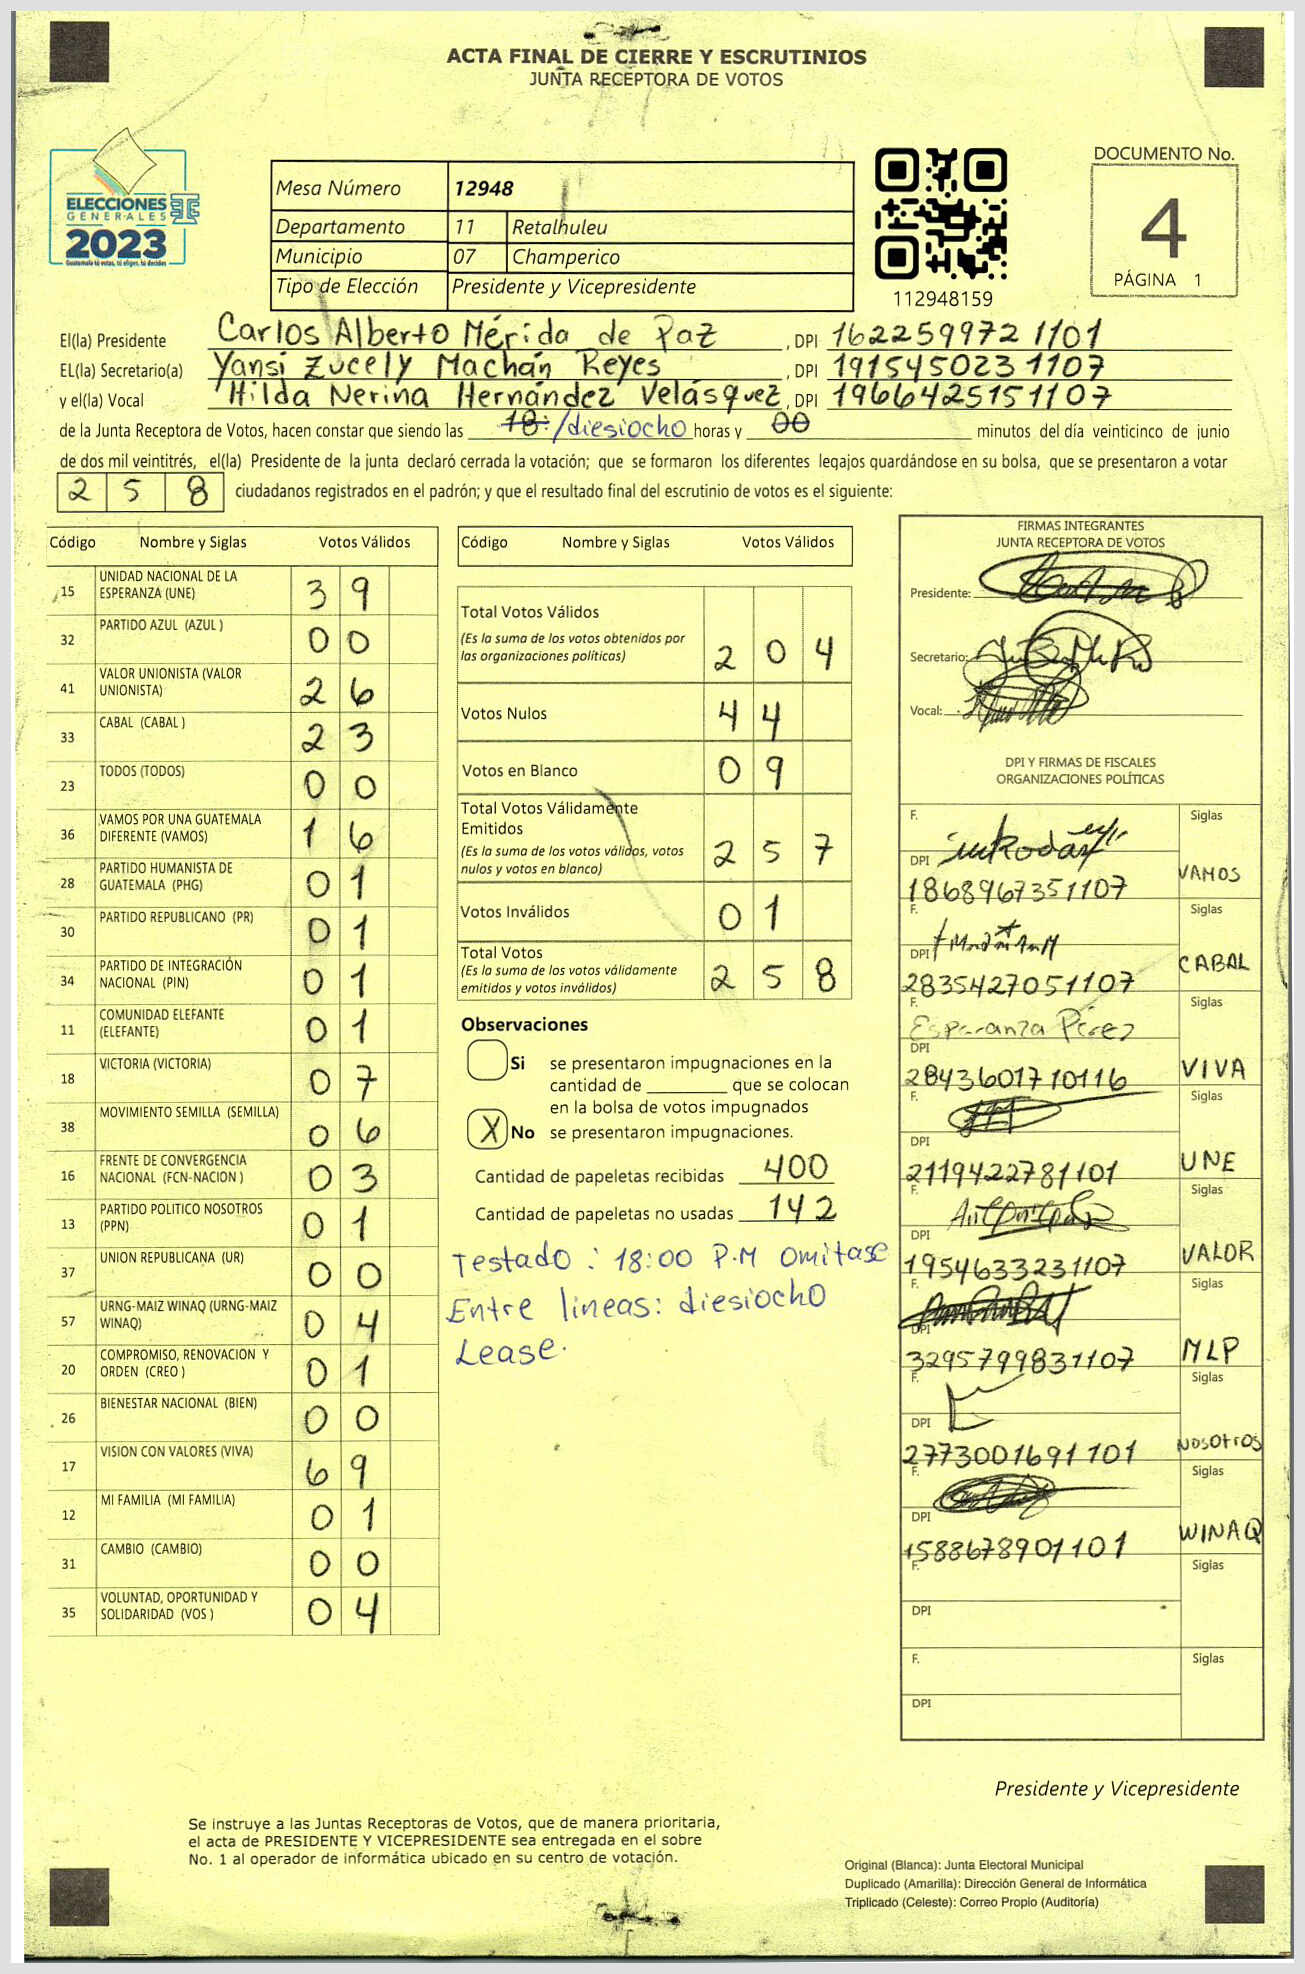 ACTA FINAL DE CIERRE Y ESCRUTINIOS
JUNTA RECEPTORA DE VOTOS
ELECCIONES
GENERALES
2023
Guatemala tú votas, tú eliges, tú decides
Mesa Número 12948
Departamento 11 Retalhuleu
Municipio 07 Champerico
Tipo de Elección Presidente y Vicepresidente
112948159
DOCUMENTO No.
4
PÁGINA 1
El(la) Presidente Carlos Alberto Mérida de Paz, DPI 162259972 1101
EL(la) Secretario(a) Yansi Zucely Machán Reyes, DPI 191545023 1107
y el(la) Vocal Hilda Nerina Hernández Velásquez, DPI 1966425151107
de la Junta Receptora de Votos, hacen constar que siendo las 18:/diesiocho horas y 00 minutos del día veinticinco de junio
de dos mil veintitrés, el(la) Presidente de la junta declaró cerrada la votación; que se formaron los diferentes legajos guardándose en su bolsa, que se presentaron a votar
2 5 8 ciudadanos registrados en el padrón; y que el resultado final del escrutinio de votos es el siguiente:
Código Nombre y Siglas Votos Válidos
15 UNIDAD NACIONAL DE LA
ESPERANZA (UNE) 3 9
32 PARTIDO AZUL (AZUL ) 0 0
41 VALOR UNIONISTA (VALOR
UNIONISTA) 2 6
33 CABAL (CABAL ) 2 3
23 TODOS (TODOS) 0 0
36 VAMOS POR UNA GUATEMALA
DIFERENTE (VAMOS) 1 6
28 PARTIDO HUMANISTA DE
GUATEMALA (PHG) 0 1
30 PARTIDO REPUBLICANO (PR) 0 1
34 PARTIDO DE INTEGRACIÓN
NACIONAL (PIN) 0 1
11 COMUNIDAD ELEFANTE
(ELEFANTE) 0 1
18 VICTORIA (VICTORIA) 0 7
38 MOVIMIENTO SEMILLA (SEMILLA) 0 6
16 FRENTE DE CONVERGENCIA
NACIONAL (FCN-NACION ) 0 3
13 PARTIDO POLITICO NOSOTROS
(PPN) 0 1
37 UNION REPUBLICANA (UR) 0 0
57 URNG-MAIZ WINAQ (URNG-MAIZ
WINAQ) 0 4
20 COMPROMISO, RENOVACION Y
ORDEN (CREO ) 0 1
26 BIENESTAR NACIONAL (BIEN) 0 0
17 VISION CON VALORES (VIVA) 6 9
12 MI FAMILIA (MI FAMILIA) 0 1
31 CAMBIO (CAMBIO) 0 0
35 VOLUNTAD, OPORTUNIDAD Y
SOLIDARIDAD (VOS ) 0 4
Código Nombre y Siglas Votos Válidos
Total Votos Válidos
(Es la suma de los votos obtenidos por
las organizaciones políticas) 2 0 4
Votos Nulos 4 4
Votos en Blanco 0 9
Total Votos Válidamente
Emitidos
(Es la suma de los votos válidos, votos
nulos y votos en blanco) 2 5 7
Votos Inválidos 0 1
Total Votos
(Es la suma de los votos válidamente
emitidos y votos inválidos) 2 5 8
Observaciones
Si se presentaron impugnaciones en la
cantidad de ________ que se colocan
en la bolsa de votos impugnados
X No se presentaron impugnaciones.
Cantidad de papeletas recibidas 400
Cantidad de papeletas no usadas 142
Testado : 18:00 P.M Omitase
Entre lineas: diesiocho
Lease.
FIRMAS INTEGRANTES
JUNTA RECEPTORA DE VOTOS
Presidente:
Secretario:
Vocal:
DPI Y FIRMAS DE FISCALES
ORGANIZACIONES POLÍTICAS
F. Siglas
DPI 1868967351107 VAMOS
F. Siglas
DPI 2835427051107 CABAL
F. Esperanza Pérez Siglas
DPI 2843601710116 VIVA
F. Siglas
DPI 2119422781101 UNE
F. Siglas
DPI 1954633231107 VALOR
F. Siglas
DPI 3295799831107 MLP
F. Siglas
DPI 2773001691101 NOSOTROS
F. Siglas
DPI 1588678901101 WINAQ
F. Siglas
DPI
F. Siglas
DPI
Presidente y Vicepresidente
Se instruye a las Juntas Receptoras de Votos, que de manera prioritaria,
el acta de PRESIDENTE Y VICEPRESIDENTE sea entregada en el sobre
No. 1 al operador de informática ubicado en su centro de votación.
Original (Blanca): Junta Electoral Municipal
Duplicado (Amarilla): Dirección General de Informática
Triplicado (Celeste): Correo Propio (Auditoría)